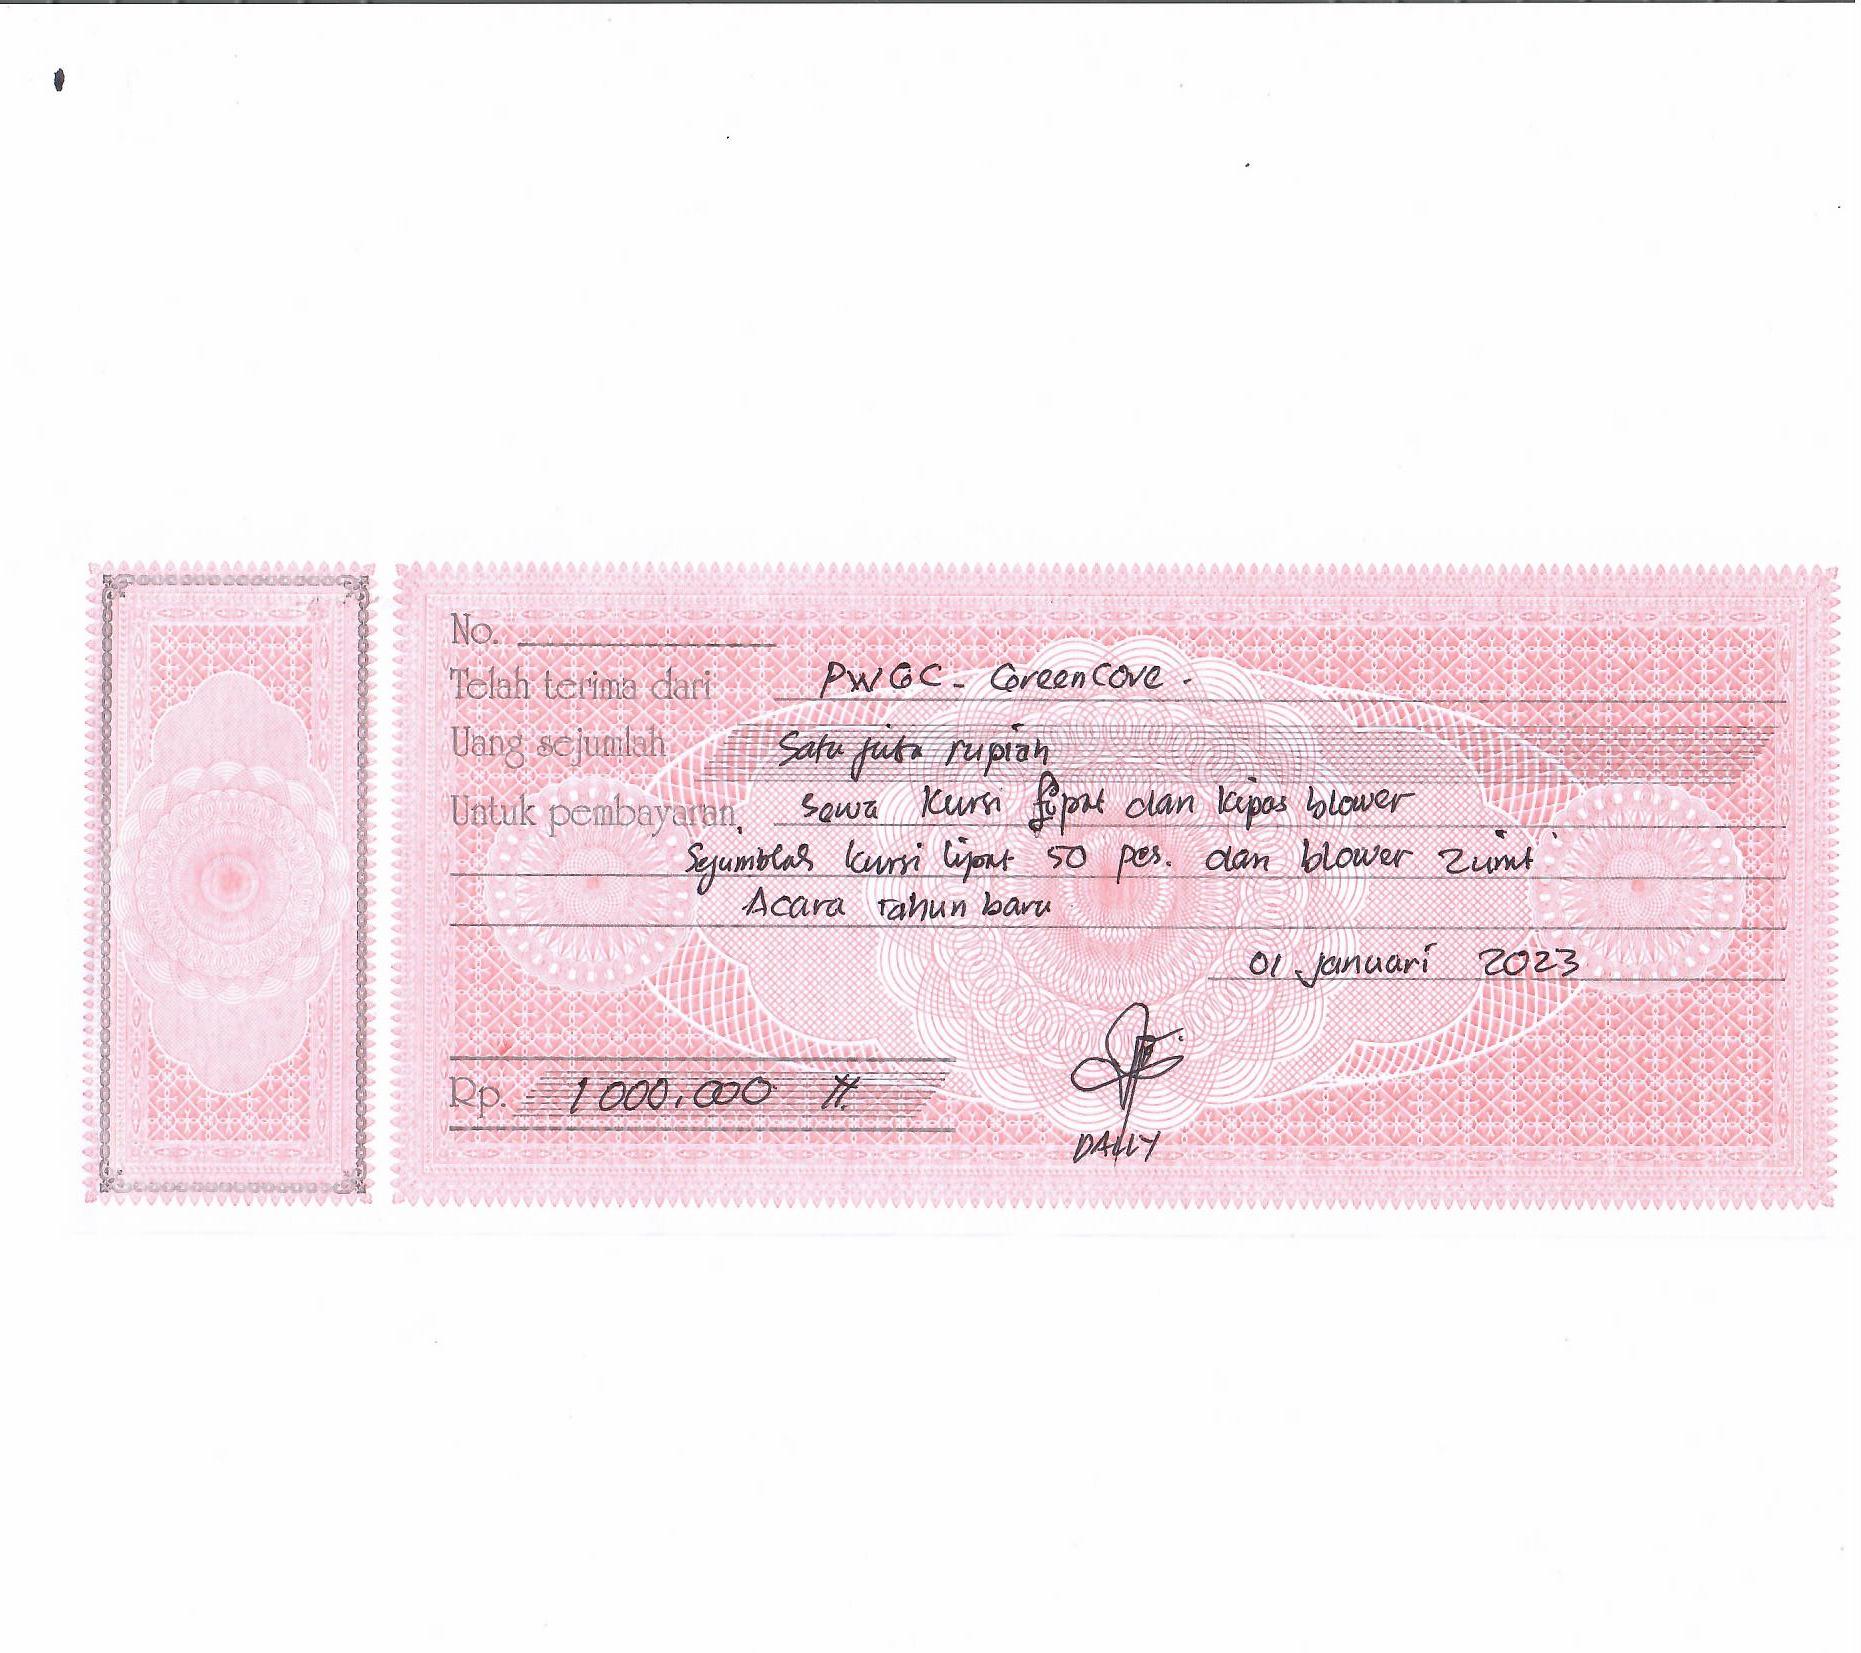 No.
Telah terima dari PWGC - GreenCove -
Uang sejumlah Satu juta rupiah
Untuk pembayaran, sewa kursi lipat dan kipas blower
Sejumblah kursi lipat 50 pcs. dan blower 2 unit
Acara tahun baru
01 januari 2023
Rp. 1000.000
DALLY